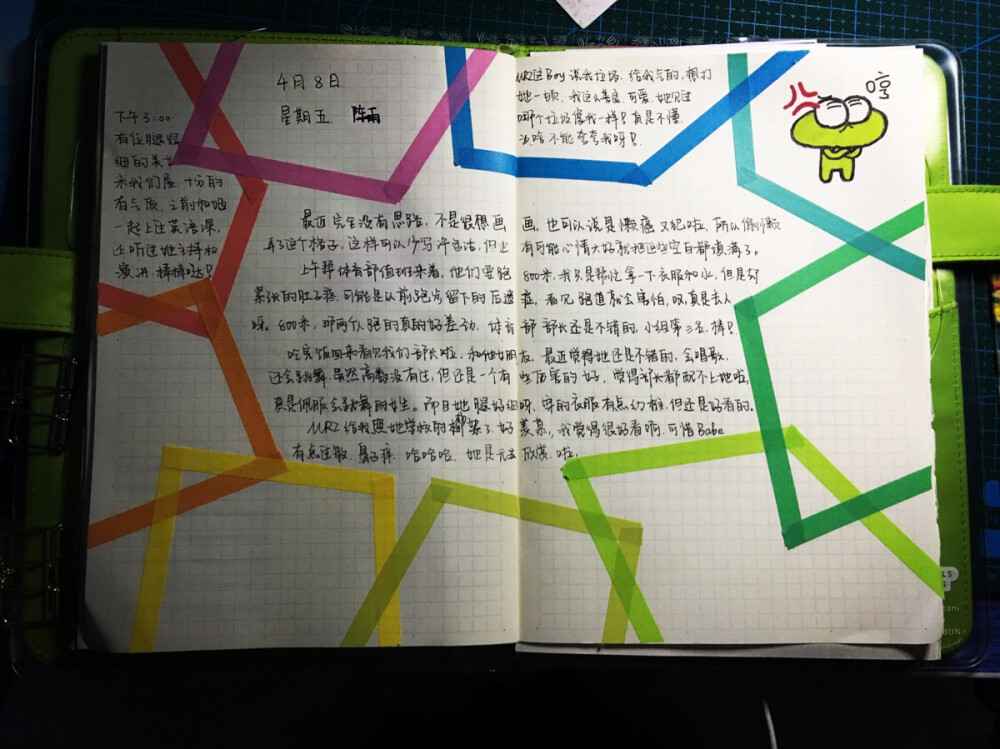 4月8日
星期五 阵雨
下午3:00
有位腿超
细的美女
来我们屋,十分的
有气质,之前和她
一起上过英语课,
还听过她主持和
演讲,棒棒哒!
MRZ这Boy说我垃圾,给我气的,想打
她一顿,我这么善良,可爱,她见过
哪个垃圾像我一样?真是不懂
为啥不能夸夸我呀!
哼
最近完全没有思路,不是很想画画,也可以说是懒癌又犯啦,所以偷小懒
弄了这个格子,这样可以少写许多话,但也有可能心情大好就把这些空白都填满了。
上午帮体育部值班来着,他们要跑800米,我只是帮忙拿一下衣服和水,但是却
紧张的肚子疼,可能是从前跑步留下的后遗症,看见跑道就会害怕,哎,真是丢人
呀。800米,那两个人跑的真的好差劲,体育部部长还是不错的,小组第三名,棒!
吃完饭回来看见我们部长啦,和他女朋友,最近觉得她还是不错的,会唱歌,
还会跳舞,虽然高数没有过,但还是一个有些厉害的女子,觉得部长都配不上她啦,
真是佩服会跳舞的女生。而且她腿好细呀,穿的衣服有点幼稚,但还是好看的。
MRZ给我照她学校的樱花了,好羡慕,我觉得很好看啊,可惜Babe
有点过敏,鼻子痒,哈哈哈,她是无法欣赏啦。